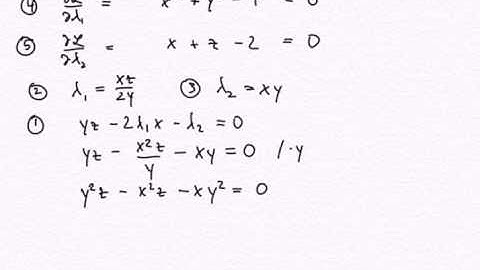 ④ ∂ℒ/∂λ₁ = x² + y² - 1 = 0
⑤ ∂ℒ/∂λ₂ = x + z - 2 = 0
② λ₁ = xz/2y ③ λ₂ = xy
① yz - 2λ₁x - λ₂ = 0
yz - x²z/y - xy = 0 /·y
y²z - x²z - xy² = 0